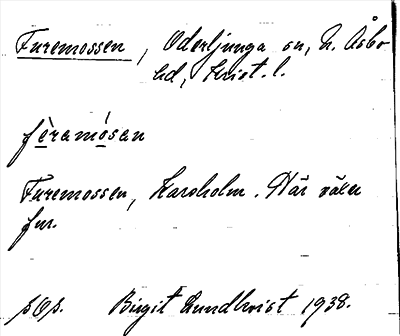 Furemossen, Oderljunga sn, N. Åsbo
hd, Krist. l.
fèramósen
Furemossen, Karsholm. Här växer
fur.
sOs. Birgit Lundkvist 1938.